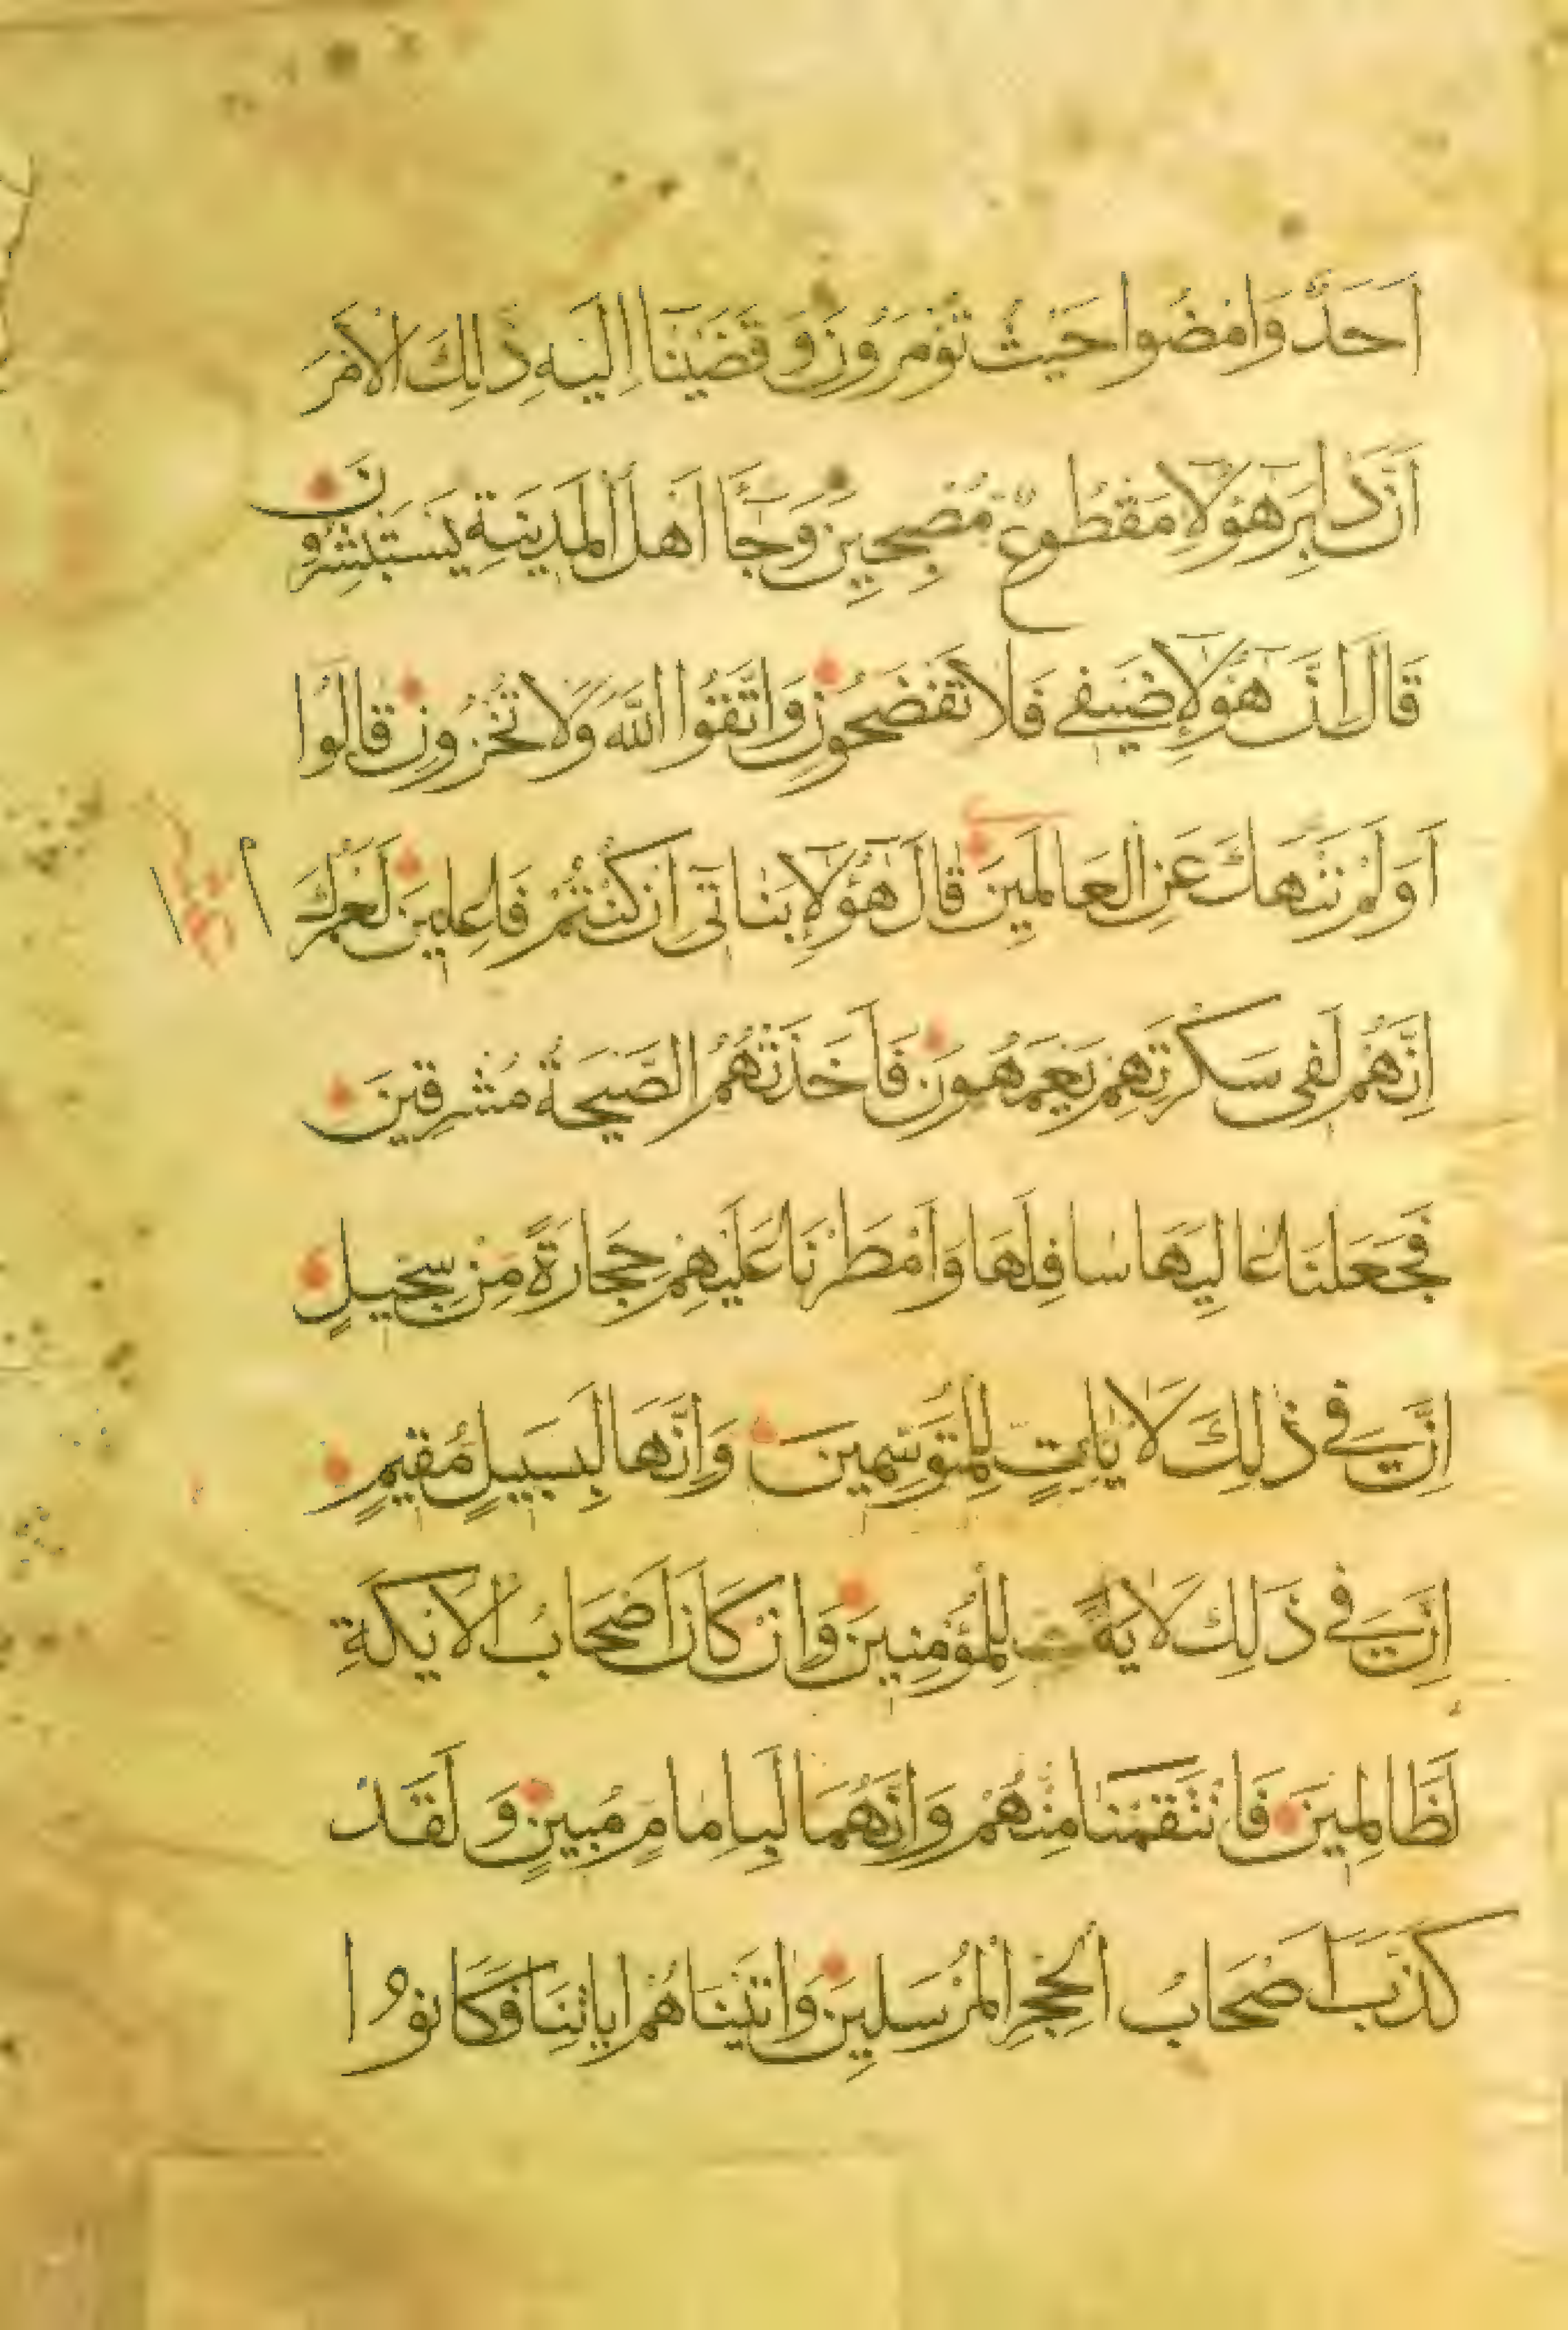 اَحَدٌ وَامْضُوا حَيْثُ تُؤْمَرُونَ وَقَضَيْنَا اِلَيْهِ ذٰلِكَ الْاَمْرَ
اَنَّ دَابِرَ هٰؤُلَاءِ مَقْطُوعٌ مُصْبِحِينَ وَجَاءَ اَهْلُ الْمَدِينَةِ يَسْتَبْشِرُونَ
قَالَ اِنَّ هٰؤُلَاءِ ضَيْفِي فَلَا تَفْضَحُونِ وَاتَّقُوا اللّٰهَ وَلَا تُخْزُونِ قَالُوا
اَوَلَمْ نَنْهَكَ عَنِ الْعَالَمِينَ قَالَ هٰؤُلَاءِ بَنَاتِي اِنْ كُنْتُمْ فَاعِلِينَ لَعَمْرُكَ
اِنَّهُمْ لَفِي سَكْرَتِهِمْ يَعْمَهُونَ فَاَخَذَتْهُمُ الصَّيْحَةُ مُشْرِقِينَ
فَجَعَلْنَا عَالِيَهَا سَافِلَهَا وَاَمْطَرْنَا عَلَيْهِمْ حِجَارَةً مِنْ سِجِّيلٍ
اِنَّ فِي ذٰلِكَ لَاٰيَاتٍ لِلْمُتَوَسِّمِينَ وَاِنَّهَا لَبِسَبِيلٍ مُقِيمٍ
اِنَّ فِي ذٰلِكَ لَاٰيَةً لِلْمُؤْمِنِينَ وَاِنْ كَانَ اَصْحَابُ الْاَيْكَةِ
لَظَالِمِينَ فَانْتَقَمْنَا مِنْهُمْ وَاِنَّهُمَا لَبِاِمَامٍ مُبِينٍ وَلَقَدْ
كَذَّبَ اَصْحَابُ الْحِجْرِ الْمُرْسَلِينَ وَاٰتَيْنَاهُمْ اٰيَاتِنَا فَكَانُوا